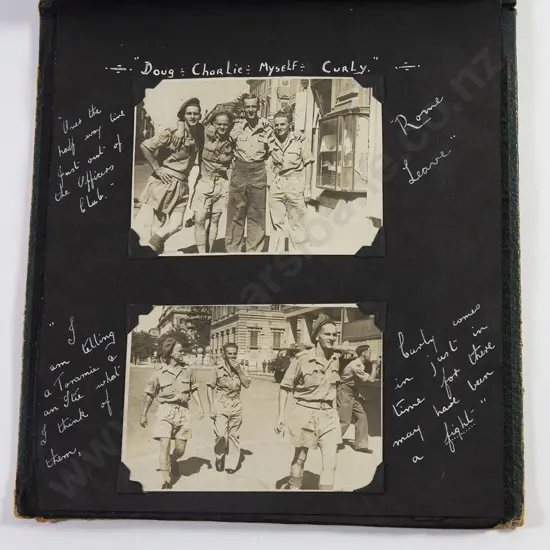 "Doug ÷ Charlie ÷ Myself ÷ Curly."
half way line
Just out of
the Officers
Club.-
Rome
Leave"
"I
am telling
a Tommie &
an what
I think of
them,
Curly comes
in just in
time for there
may have been
a fight."